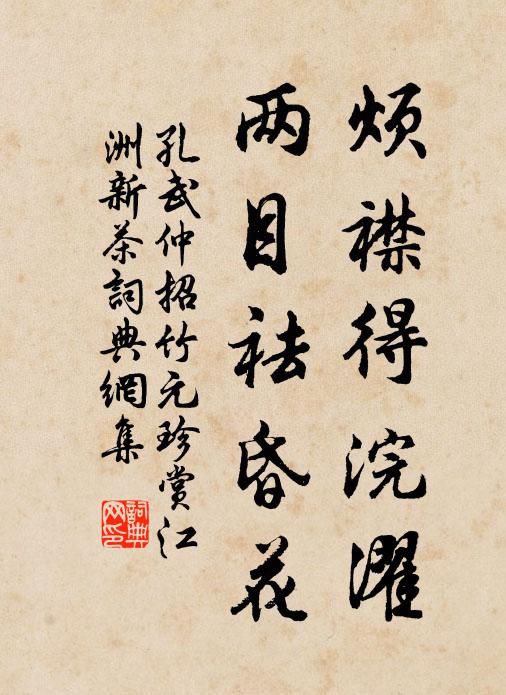 烦襟得浣濯
两目祛昏花
孔武仲招竹元珍赏江
洲新茶詞典網集
詞典网印